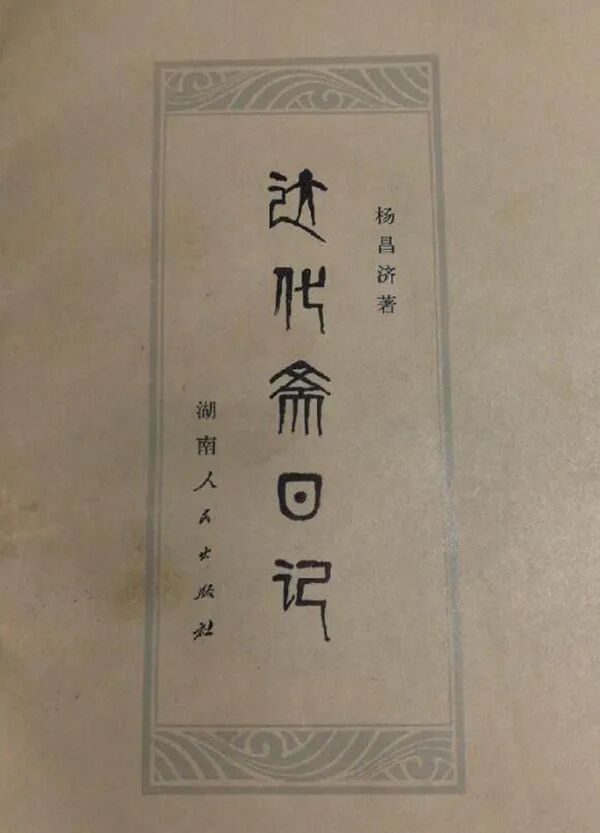 杨昌济著
达化斋日记
湖南人民出版社